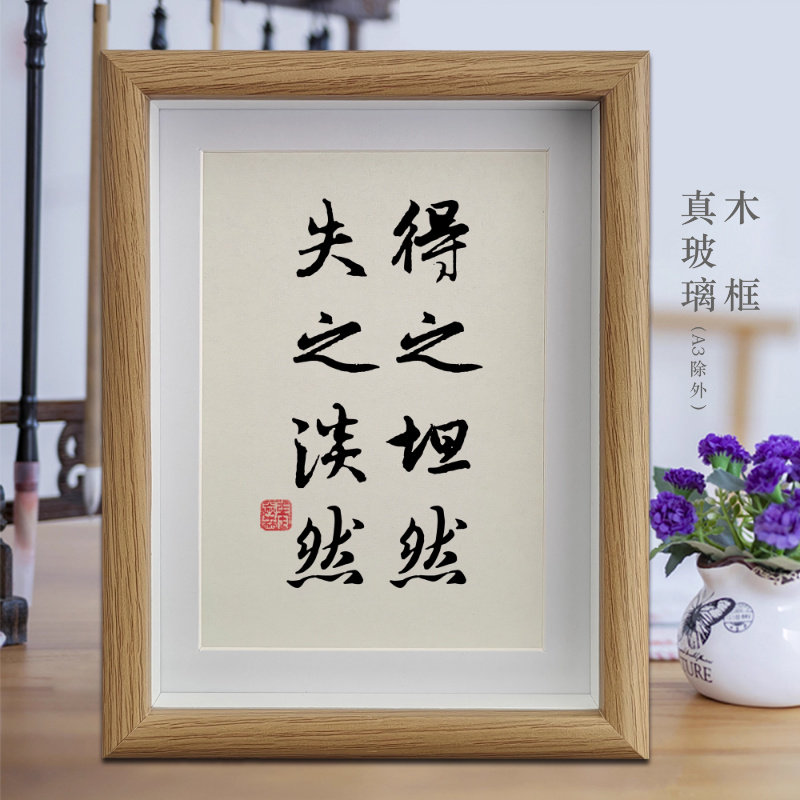 得之坦然
失之淡然
木框
真玻璃(A3除外)